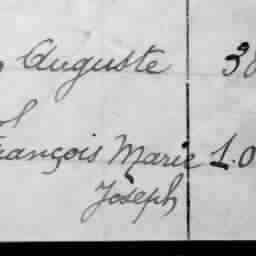 Auguste 38
François Marie 1.0
Joseph